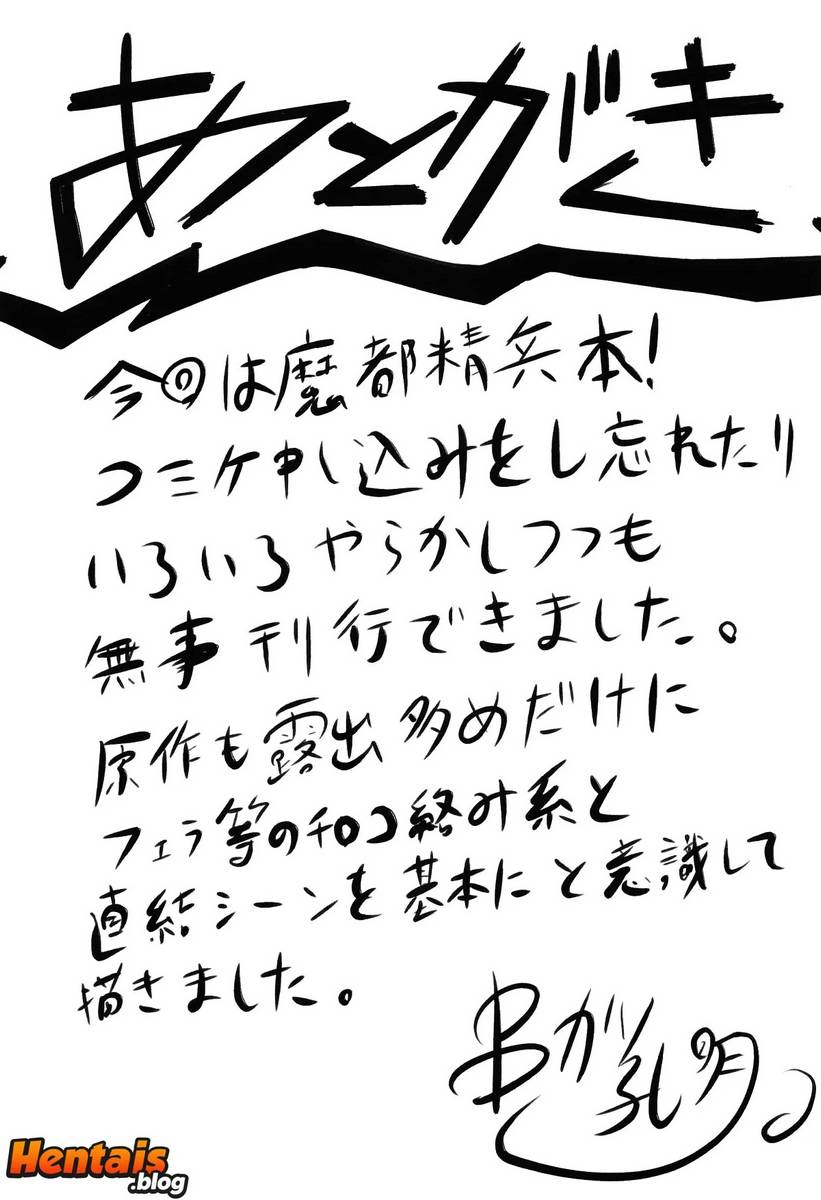 あとがき
今回は魔都精兵本!
コミケ申し込みをし忘れたり
いろいろやらかしつつも
無事刊行できました。
原作も露出多めだけに
フェラ等のチ○コ絡み系と
直結シーンを基本にと意識して
描きました。
串が孔明。
Hentais
.blog